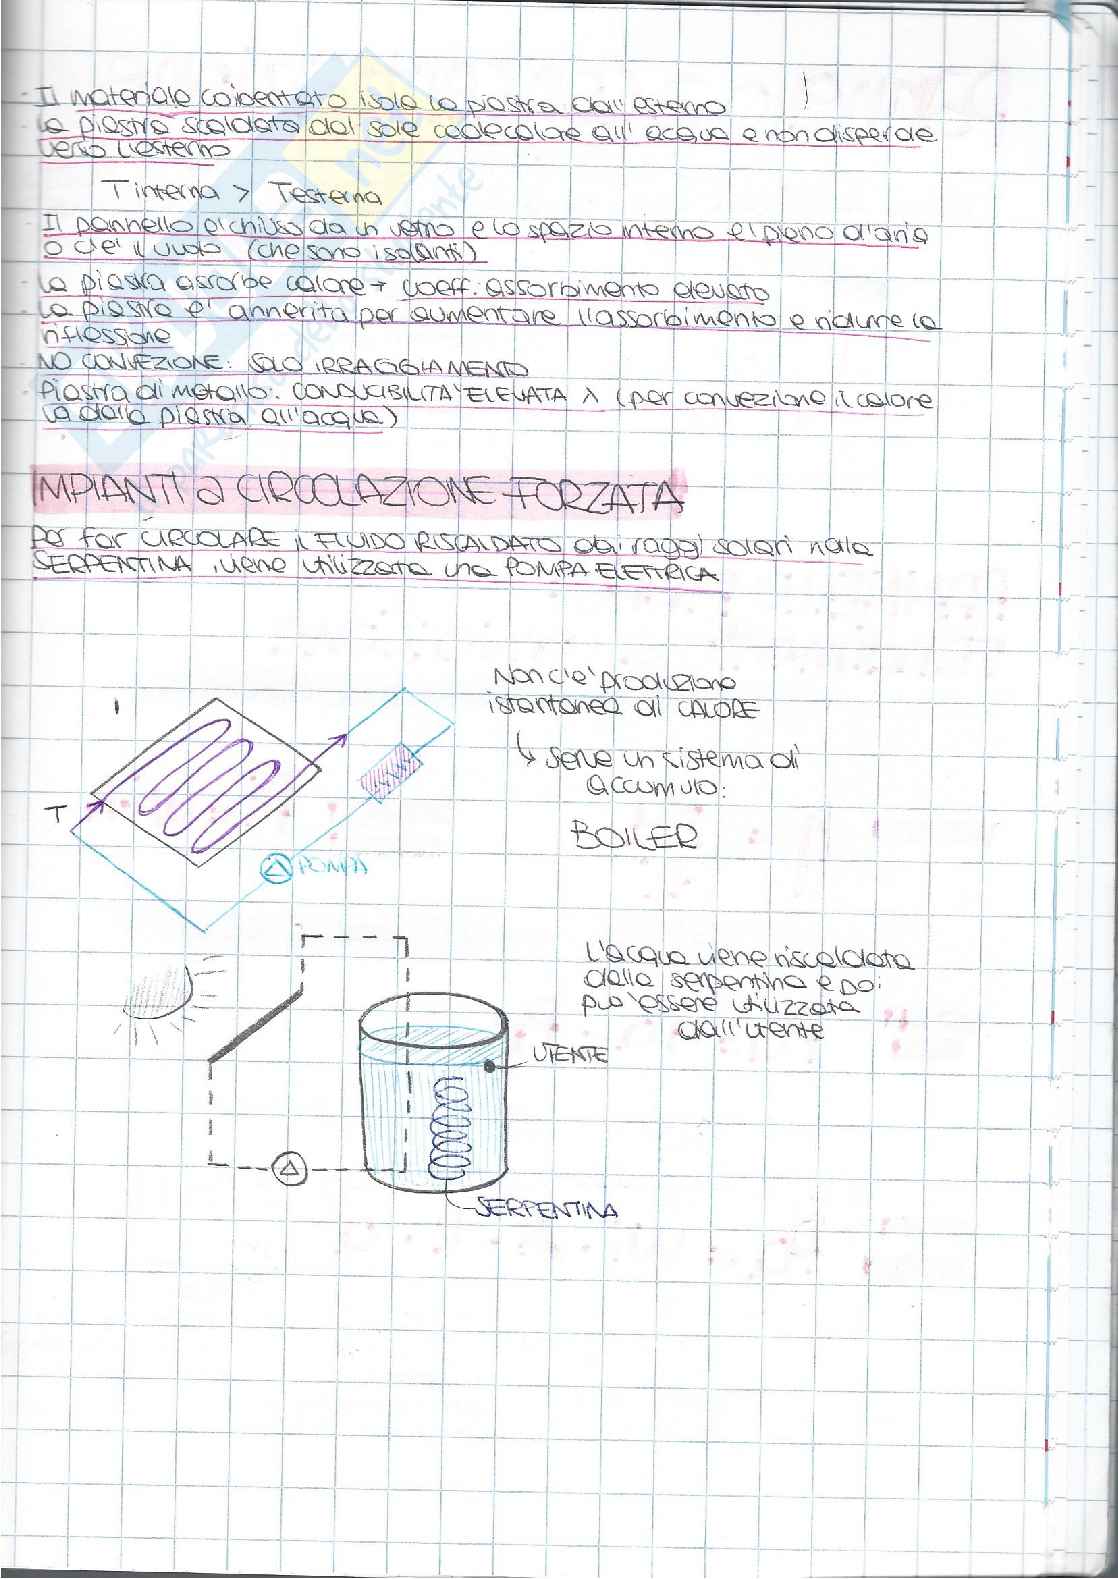 - Il materiale coibentato isola la piastra dall'esterno
- La piastra scaldata dal sole cede calore all'acqua e non disperde
verso l'esterno
T interna > T esterna
- Il pannello e' chiuso da un vetro e lo spazio interno e' pieno d'aria
o c'e' il vuoto (che sono isolanti)
- La piastra assorbe calore → coeff. assorbimento elevato
- La piastra e' annerita per aumentare l'assorbimento e ridurre la
riflessione
- NO CONVEZIONE: SOLO IRRAGGIAMENTO
- Piastra di metallo: CONDUCIBILITA' ELEVATA λ (per convezione il calore
va dalla piastra all'acqua)
IMPIANTI a CIRCOLAZIONE FORZATA
Per far CIRCOLARE il FLUIDO RISCALDATO dai raggi solari nella
SERPENTINA, viene utilizzata una POMPA ELETTRICA
Non c'e' produzione
istantanea di CALORE
↳ serve un sistema di
accumulo:
BOILER
T
POMPA
L'acqua viene riscaldata
dalla serpentina e poi
puo' essere utilizzata
dall'utente
UTENTE
SERPENTINA